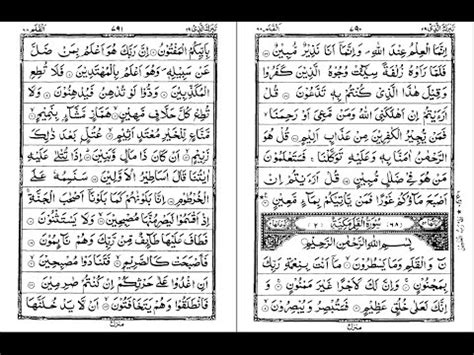 ٧٩٠
اِنَّمَا الْعِلْمُ عِنْدَ اللّٰهِ وَاِنَّمَاۤ اَنَا نَذِيْرٌ مُّبِيْنٌ
فَلَمَّا رَاَوْهُ زُلْفَةً سِيْٓـَٔتْ وُجُوْهُ الَّذِيْنَ كَفَرُوْا
وَقِيْلَ هٰذَا الَّذِيْ كُنْتُمْ بِهٖ تَدَّعُوْنَ ۝ قُلْ
اَرَءَيْتُمْ اِنْ اَهْلَكَنِيَ اللّٰهُ وَمَنْ مَّعِيَ اَوْ رَحِمَنَا
فَمَنْ يُّجِيْرُ الْكٰفِرِيْنَ مِنْ عَذَابٍ اَلِيْمٍ ۝ قُلْ هُوَ
الرَّحْمٰنُ اٰمَنَّا بِهٖ وَعَلَيْهِ تَوَكَّلْنَا فَسَتَعْلَمُوْنَ
مَنْ هُوَ فِيْ ضَلٰلٍ مُّبِيْنٍ ۝ قُلْ اَرَءَيْتُمْ اِنْ
اَصْبَحَ مَآؤُكُمْ غَوْرًا فَمَنْ يَّاْتِيْكُمْ بِمَآءٍ مَّعِيْنٍ ۝
سُوْرَةُ الْقَلَمِ مَكِّيَّةٌ
بِسْمِ اللّٰهِ الرَّحْمٰنِ الرَّحِيْمِ
نٓ وَالْقَلَمِ وَمَا يَسْطُرُوْنَ ۝ مَاۤ اَنْتَ بِنِعْمَةِ رَبِّكَ
بِمَجْنُوْنٍ ۝ وَاِنَّ لَكَ لَاَجْرًا غَيْرَ مَمْنُوْنٍ ۝ وَ
اِنَّكَ لَعَلٰى خُلُقٍ عَظِيْمٍ ۝ فَسَتُبْصِرُ وَيُبْصِرُوْنَ ۝
٧٩١
بِاَيِّكُمُ الْمَفْتُوْنُ ۝ اِنَّ رَبَّكَ هُوَ اَعْلَمُ بِمَنْ ضَلَّ
عَنْ سَبِيْلِهٖ وَهُوَ اَعْلَمُ بِالْمُهْتَدِيْنَ ۝ فَلَا تُطِعِ
الْمُكَذِّبِيْنَ ۝ وَدُّوْا لَوْ تُدْهِنُ فَيُدْهِنُوْنَ ۝ وَلَا
تُطِعْ كُلَّ حَلَّافٍ مَّهِيْنٍ ۝ هَمَّازٍ مَّشَّآءٍ بِنَمِيْمٍ ۝
مَّنَّاعٍ لِّلْخَيْرِ مُعْتَدٍ اَثِيْمٍ ۝ عُتُلٍّ بَعْدَ ذٰلِكَ
زَنِيْمٍ ۝ اَنْ كَانَ ذَا مَالٍ وَّبَنِيْنَ ۝ اِذَا تُتْلٰى عَلَيْهِ
اٰيٰتُنَا قَالَ اَسَاطِيْرُ الْاَوَّلِيْنَ ۝ سَنَسِمُهٗ عَلَى
الْخُرْطُوْمِ ۝ اِنَّا بَلَوْنٰهُمْ كَمَا بَلَوْنَاۤ اَصْحٰبَ الْجَنَّةِ
اِذْ اَقْسَمُوْا لَيَصْرِمُنَّهَا مُصْبِحِيْنَ ۝ وَلَا يَسْتَثْنُوْنَ ۝
فَطَافَ عَلَيْهَا طَآئِفٌ مِّنْ رَّبِّكَ وَهُمْ نَآئِمُوْنَ ۝
فَاَصْبَحَتْ كَالصَّرِيْمِ ۝ فَتَنَادَوْا مُصْبِحِيْنَ ۝
اَنِ اغْدُوْا عَلٰى حَرْثِكُمْ اِنْ كُنْتُمْ صٰرِمِيْنَ ۝
فَانْطَلَقُوْا وَهُمْ يَتَخَافَتُوْنَ ۝ اَنْ لَّا يَدْخُلَنَّهَا